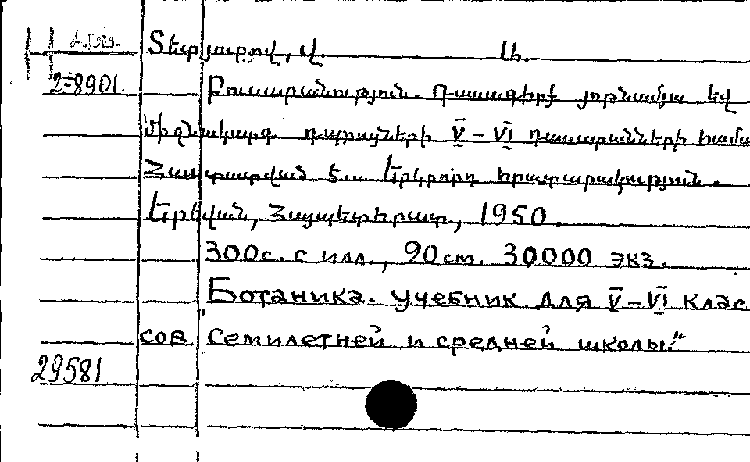 Տետրյարով, վ. Ա.
2-8901 Բուսաբանություն. Դասագիրք յոթնամյա եվ
միջնակարգ դպրոցների V – VI դասարանների համա
Հաստատված է... Երկրորդ հրատարակություն.
Երևան, Հայպետհրատ, 1950.
300с. с илл., 20 см. 30000 экз.
„Ботаника. Учебник для V – VI клас
сов семилетней и средней школы."
29581